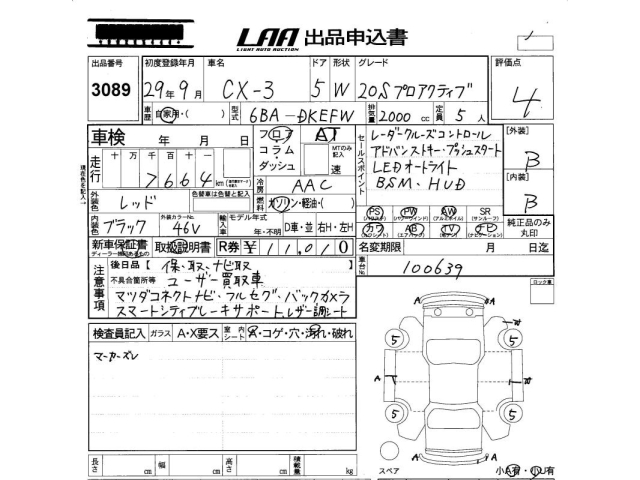 LAA 出品申込書
LIGHT AUTO AUCTION
出品番号 3089
初度登録年月 29年9月
車名 CX-3
ドア 形状 5 W
グレード 20Sプロアクティブ
評価点 4
車歴 自家用・( )
型式 6BA-DKEFW
排気量 2000 cc
定員 5 人
車検 年 月 日
フロア コラム・ダッシュ
AT
MTのみ記入 速
セールスポイント
レーダークルーズコントロール
アドバンストキー・プッシュスタート
LEDオートライト
BSM・HUD
[外装] B
[内装] B
走行 十 万 千 百 十
7664 km
外装色 レッド
色替車は色替と記入
冷房 AAC
燃料 ガソリン・軽油・( )
PS PW AW SR
カワ AB TV ナビ
純正品のみ丸印
内装色 ブラック
外装カラーNo. 46V
輸入車 モデル年式 年・不明
D車・並 右H・左H
新車保証書 取扱説明書
R券 ¥11,010
名変期限 月 日迄
車台No. 100639
注意事項
後日品【保、取、ナビ取】
不具合箇所等 ユーザー買取車
マツダコネクトナビ・フルセグ・バックカメラ
スマートシティブレーキサポート、レザー調シート
検査員記入 ガラス A・X要ス 室内シート A・コゲ・穴・汚れ・破れ
マーカーズレ
ロック車
A A
A A
5 5
5 5
長さ cm 幅 cm 高さ cm 積載量 kg
スペア
小A有・小U有